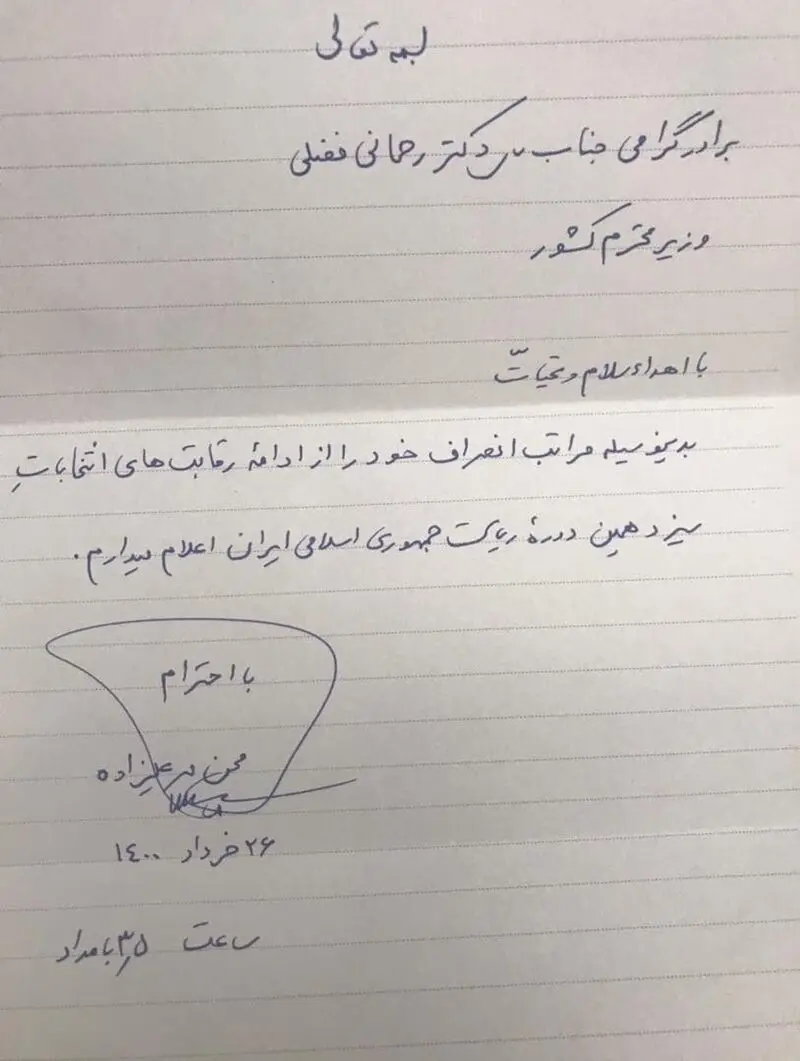 بسمه تعالی
برادر گرامی جناب آقای دکتر رحمانی فضلی
وزیر محترم کشور
با اهداء سلام و تحیّات
بدینوسیله مراتب انصراف خود را از ادامهٔ رقابت های انتخاباتِ
سیزدهمین دورهٔ ریاست جمهوری اسلامی ایران اعلام میدارم.
با احترام
محسن مهرعلیزاده
۲۶ خرداد ۱۴۰۰
ساعت ۳٫۵ بامداد